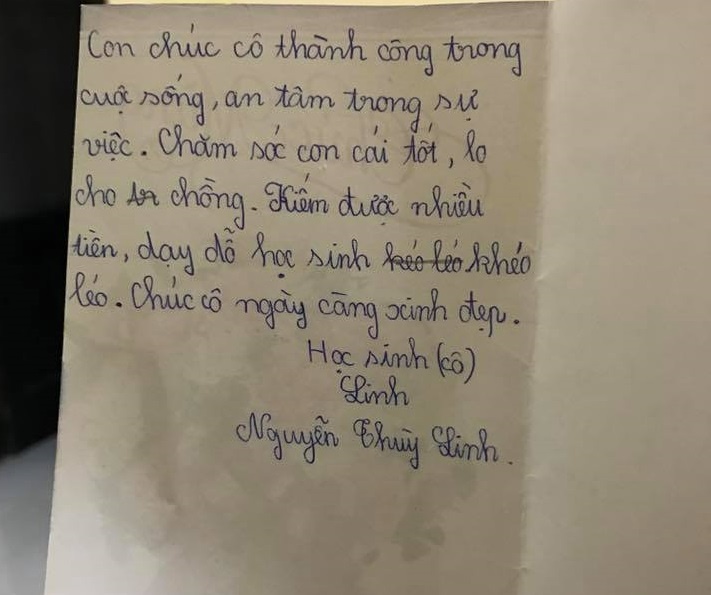 Con chúc cô thành công trong
cuộc sống, an tâm trong sự
việc. Chăm sóc con cái tốt, lo
cho chồng. Kiếm được nhiều
tiền, dạy dỗ học sinh kéo léo khéo
léo. Chúc cô ngày càng xinh đẹp.
Học sinh (cô)
Linh
Nguyễn Thuỳ Linh.